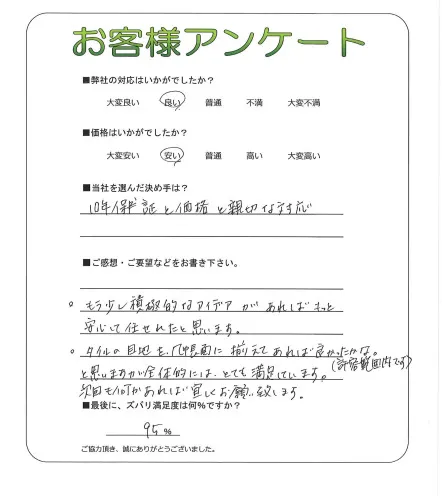 お客様アンケート
■弊社の対応はいかがでしたか?
大変良い 良い 普通 不満 大変不満
■価格はいかがでしたか?
大変安い 安い 普通 高い 大変高い
■当社を選んだ決め手は?
10年保証と価格と親切な対応
■ご感想・ご要望などをお書き下さい。
○ もう少し積極的なアイデアがあればもっと
安心して任せれたと思います。
○ タイルの目地を几帳面に揃えてあれば良かったかな。
(許容範囲内です)
と思いますが全体的には、とても満足しています。
次回も何かあれば宜しくお願い致します。
■最後に、ズバリ満足度は何%ですか?
95%
ご協力頂き、誠にありがとうございました。